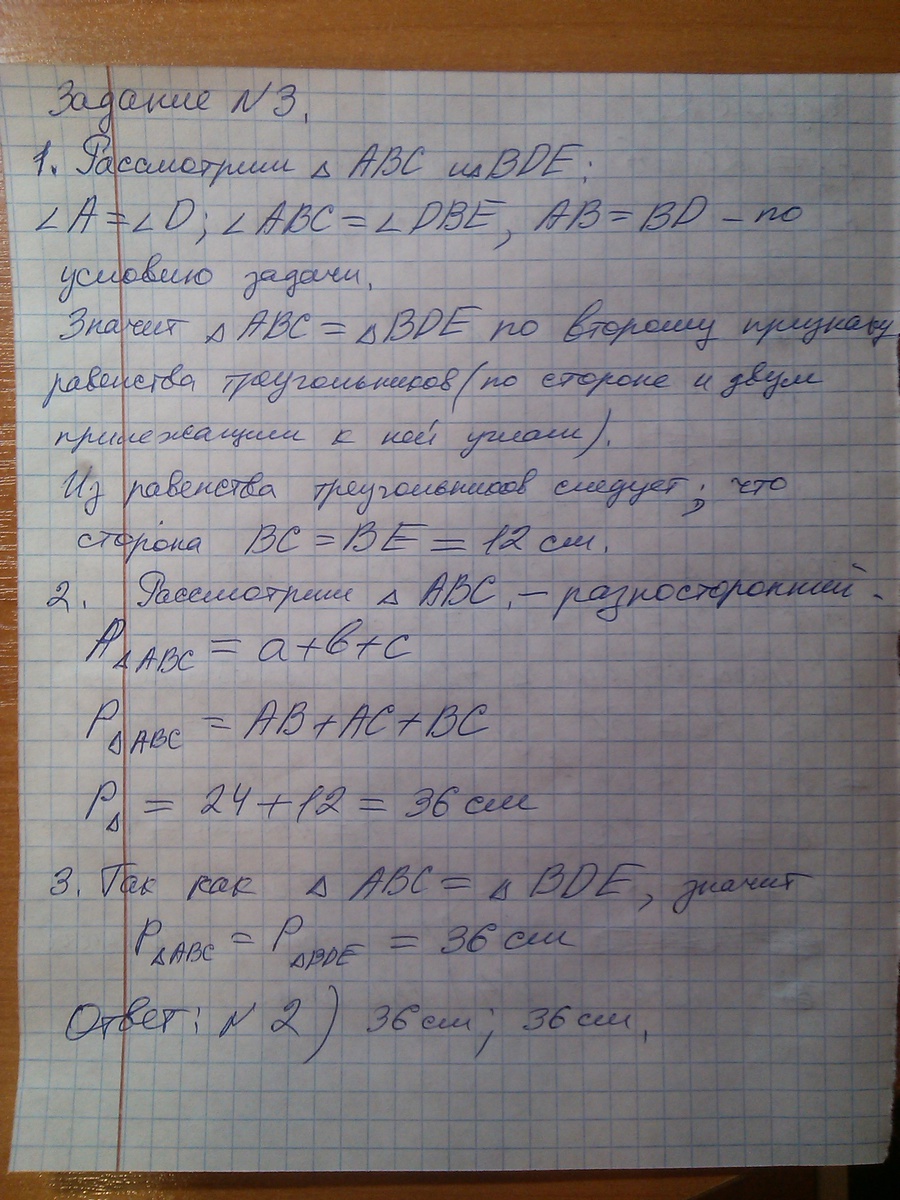 Задание N 3.
1. Рассмотрим △ ABC и △ BDE:
∠A = ∠D; ∠ABC = ∠DBE, AB = BD – по
условию задачи.
Значит △ABC = △BDE по второму признаку
равенства треугольников (по стороне и двум
прилежащим к ней углам).
Из равенства треугольников следует, что
сторона BC = BE = 12 см.
2. Рассмотрим △ ABC, – разносторонний.
P△ABC = a+b+c
P△ABC = AB+AC+BC
P△ = 24+12 = 36 см
3. Так как △ ABC = △ BDE, значит
P△ABC = P△BDE = 36 см
Ответ: N 2) 36 см; 36 см.